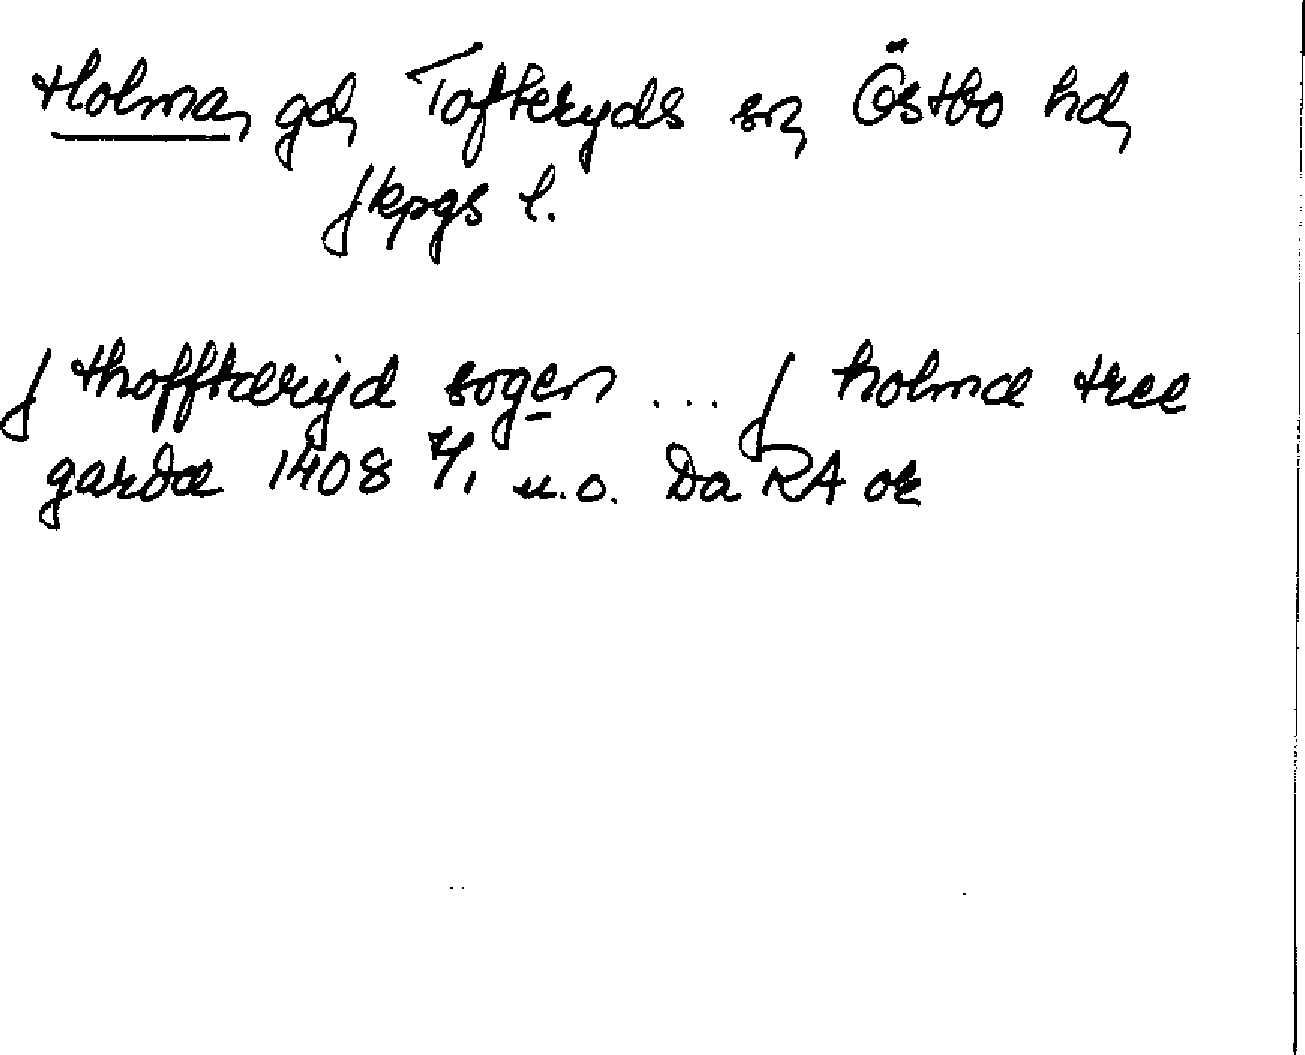 Holma, gd, Tofteryds sn, Östbo hd,
Jkpgs l.
j thofftæryd sogen ... j holmæ tree
gardæ 1408 7/1 u.o. Da RA or